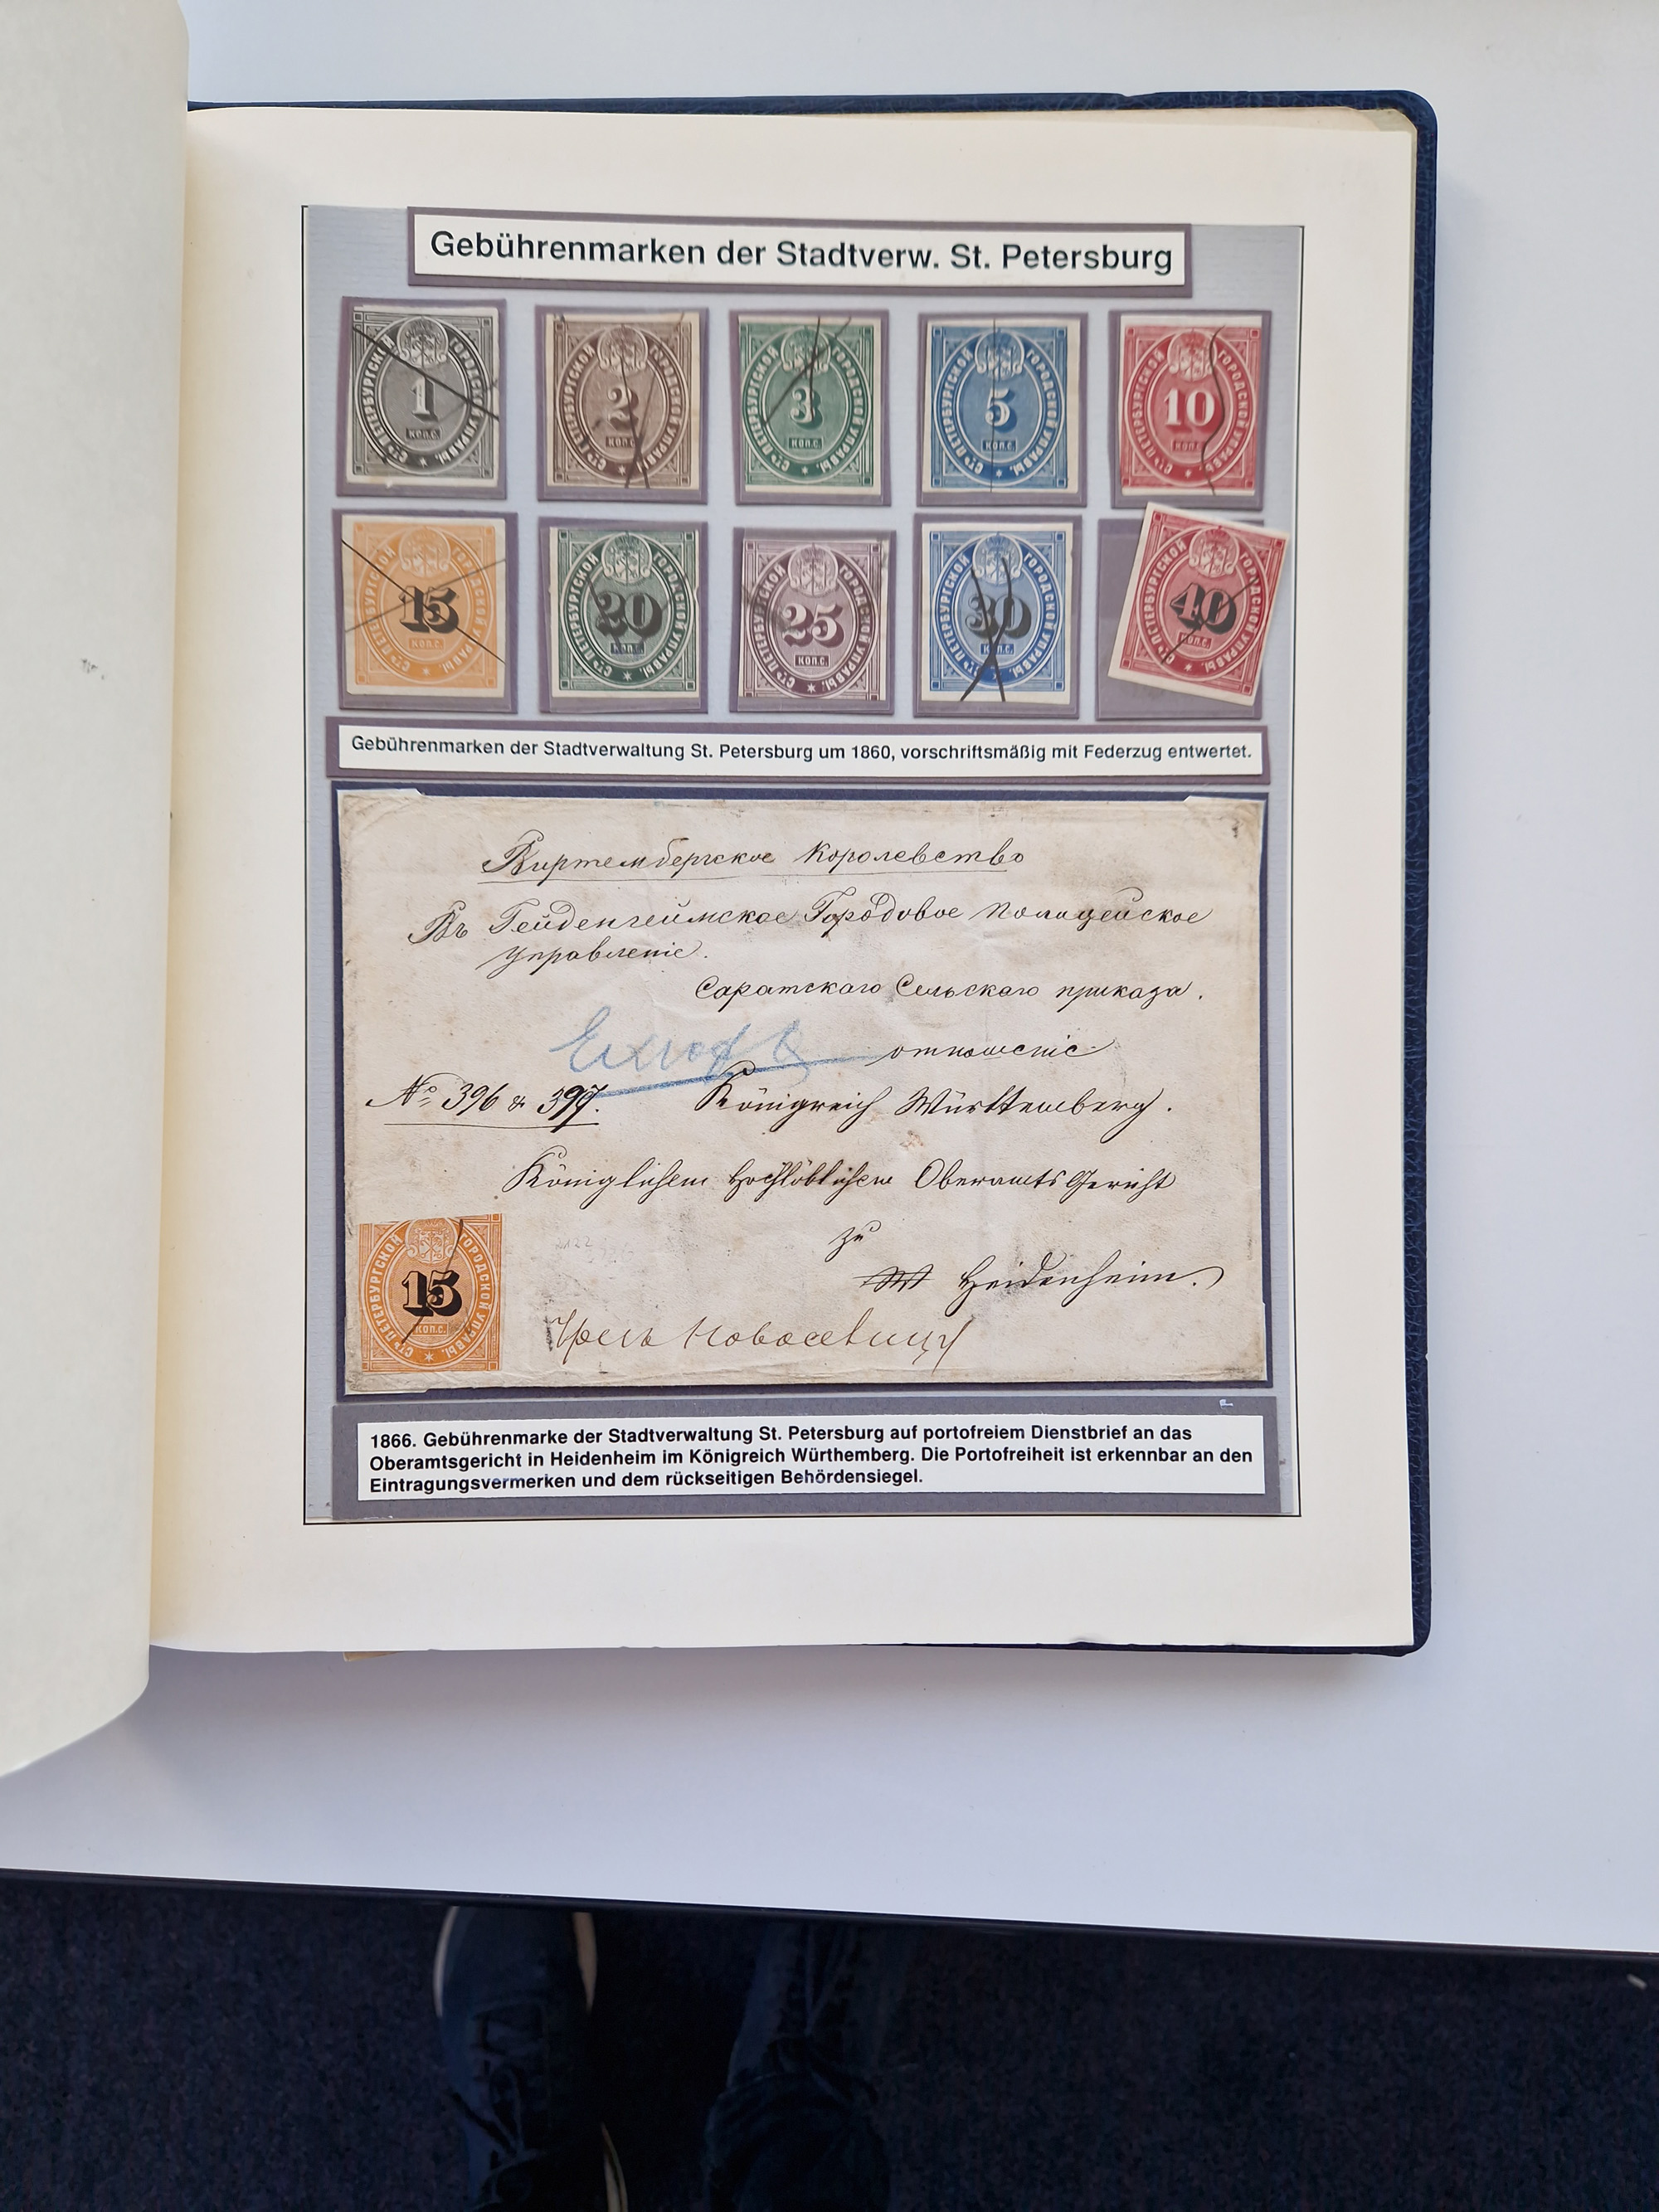 Gebührenmarken der Stadtverw. St. Petersburg
С.ТЪ ПЕТЕРБУРГСКОЙ ГОРОДСКОЙ УПРАВЫ.
1
КОП.С.
С.ТЪ ПЕТЕРБУРГСКОЙ ГОРОДСКОЙ УПРАВЫ.
2
КОП.С.
С.ТЪ ПЕТЕРБУРГСКОЙ ГОРОДСКОЙ УПРАВЫ.
3
КОП.С.
С.ТЪ ПЕТЕРБУРГСКОЙ ГОРОДСКОЙ УПРАВЫ.
5
КОП.С.
С.ТЪ ПЕТЕРБУРГСКОЙ ГОРОДСКОЙ УПРАВЫ.
10
КОП.С.
С.ТЪ ПЕТЕРБУРГСКОЙ ГОРОДСКОЙ УПРАВЫ.
15
КОП.С.
С.ТЪ ПЕТЕРБУРГСКОЙ ГОРОДСКОЙ УПРАВЫ.
20
КОП.С.
С.ТЪ ПЕТЕРБУРГСКОЙ ГОРОДСКОЙ УПРАВЫ.
25
КОП.С.
С.ТЪ ПЕТЕРБУРГСКОЙ ГОРОДСКОЙ УПРАВЫ.
30
КОП.С.
С.ТЪ ПЕТЕРБУРГСКОЙ ГОРОДСКОЙ УПРАВЫ.
40
КОП.С.
Gebührenmarken der Stadtverwaltung St. Petersburg um 1860, vorschriftsmäßig mit Federzug entwertet.
Виртембергское Королевство
Въ Гейденгеймское Городовое Полицейское
Управленіе.
Саратскаго Сельскаго приказа.
отношеніе
№ 396 & 397.
Königreich Württemberg.
Königlichem Hochlöblichem Oberamts Gericht
zu
Heidenheim.
С.ТЪ ПЕТЕРБУРГСКОЙ ГОРОДСКОЙ УПРАВЫ.
15
КОП.С.
Чрезъ Новоселицу
1866. Gebührenmarke der Stadtverwaltung St. Petersburg auf portofreiem Dienstbrief an das
Oberamtsgericht in Heidenheim im Königreich Würthemberg. Die Portofreiheit ist erkennbar an den
Eintragungsvermerken und dem rückseitigen Behördensiegel.